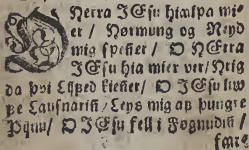 O Herra JEsu hiælpa mi
er / Nørmung og Neyd
mig spefier / O HErra
JEsu hia mier ver / Neig
da þoi Lijfed kiefier / O JEsu luw
þe Lausnarin / Leys mig aþ þungre
Pijnu / O JEsu fell i Føgnudin /
fære